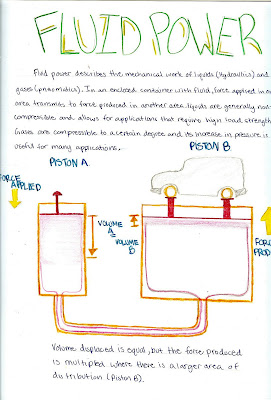 FLUID POWER
Fluid power describes the mechanical work of liquids (hydraulics) and
gases (pneumatics). In an enclosed container with fluid, force applied in one
area transmits to force produced in another area. Liquids are generally non-
compressible and allows for applications that require high load strength.
Gases are compressible to a certain degree and its increase in pressure is
useful for many applications.
PISTON A
PISTON B
FORCE
APPLIED
VOLUME A
= VOLUME
B
FORCE
PROD
Volume displaced is equal, but the force produced
is multipled where there is a larger area of
distribution (Piston B).